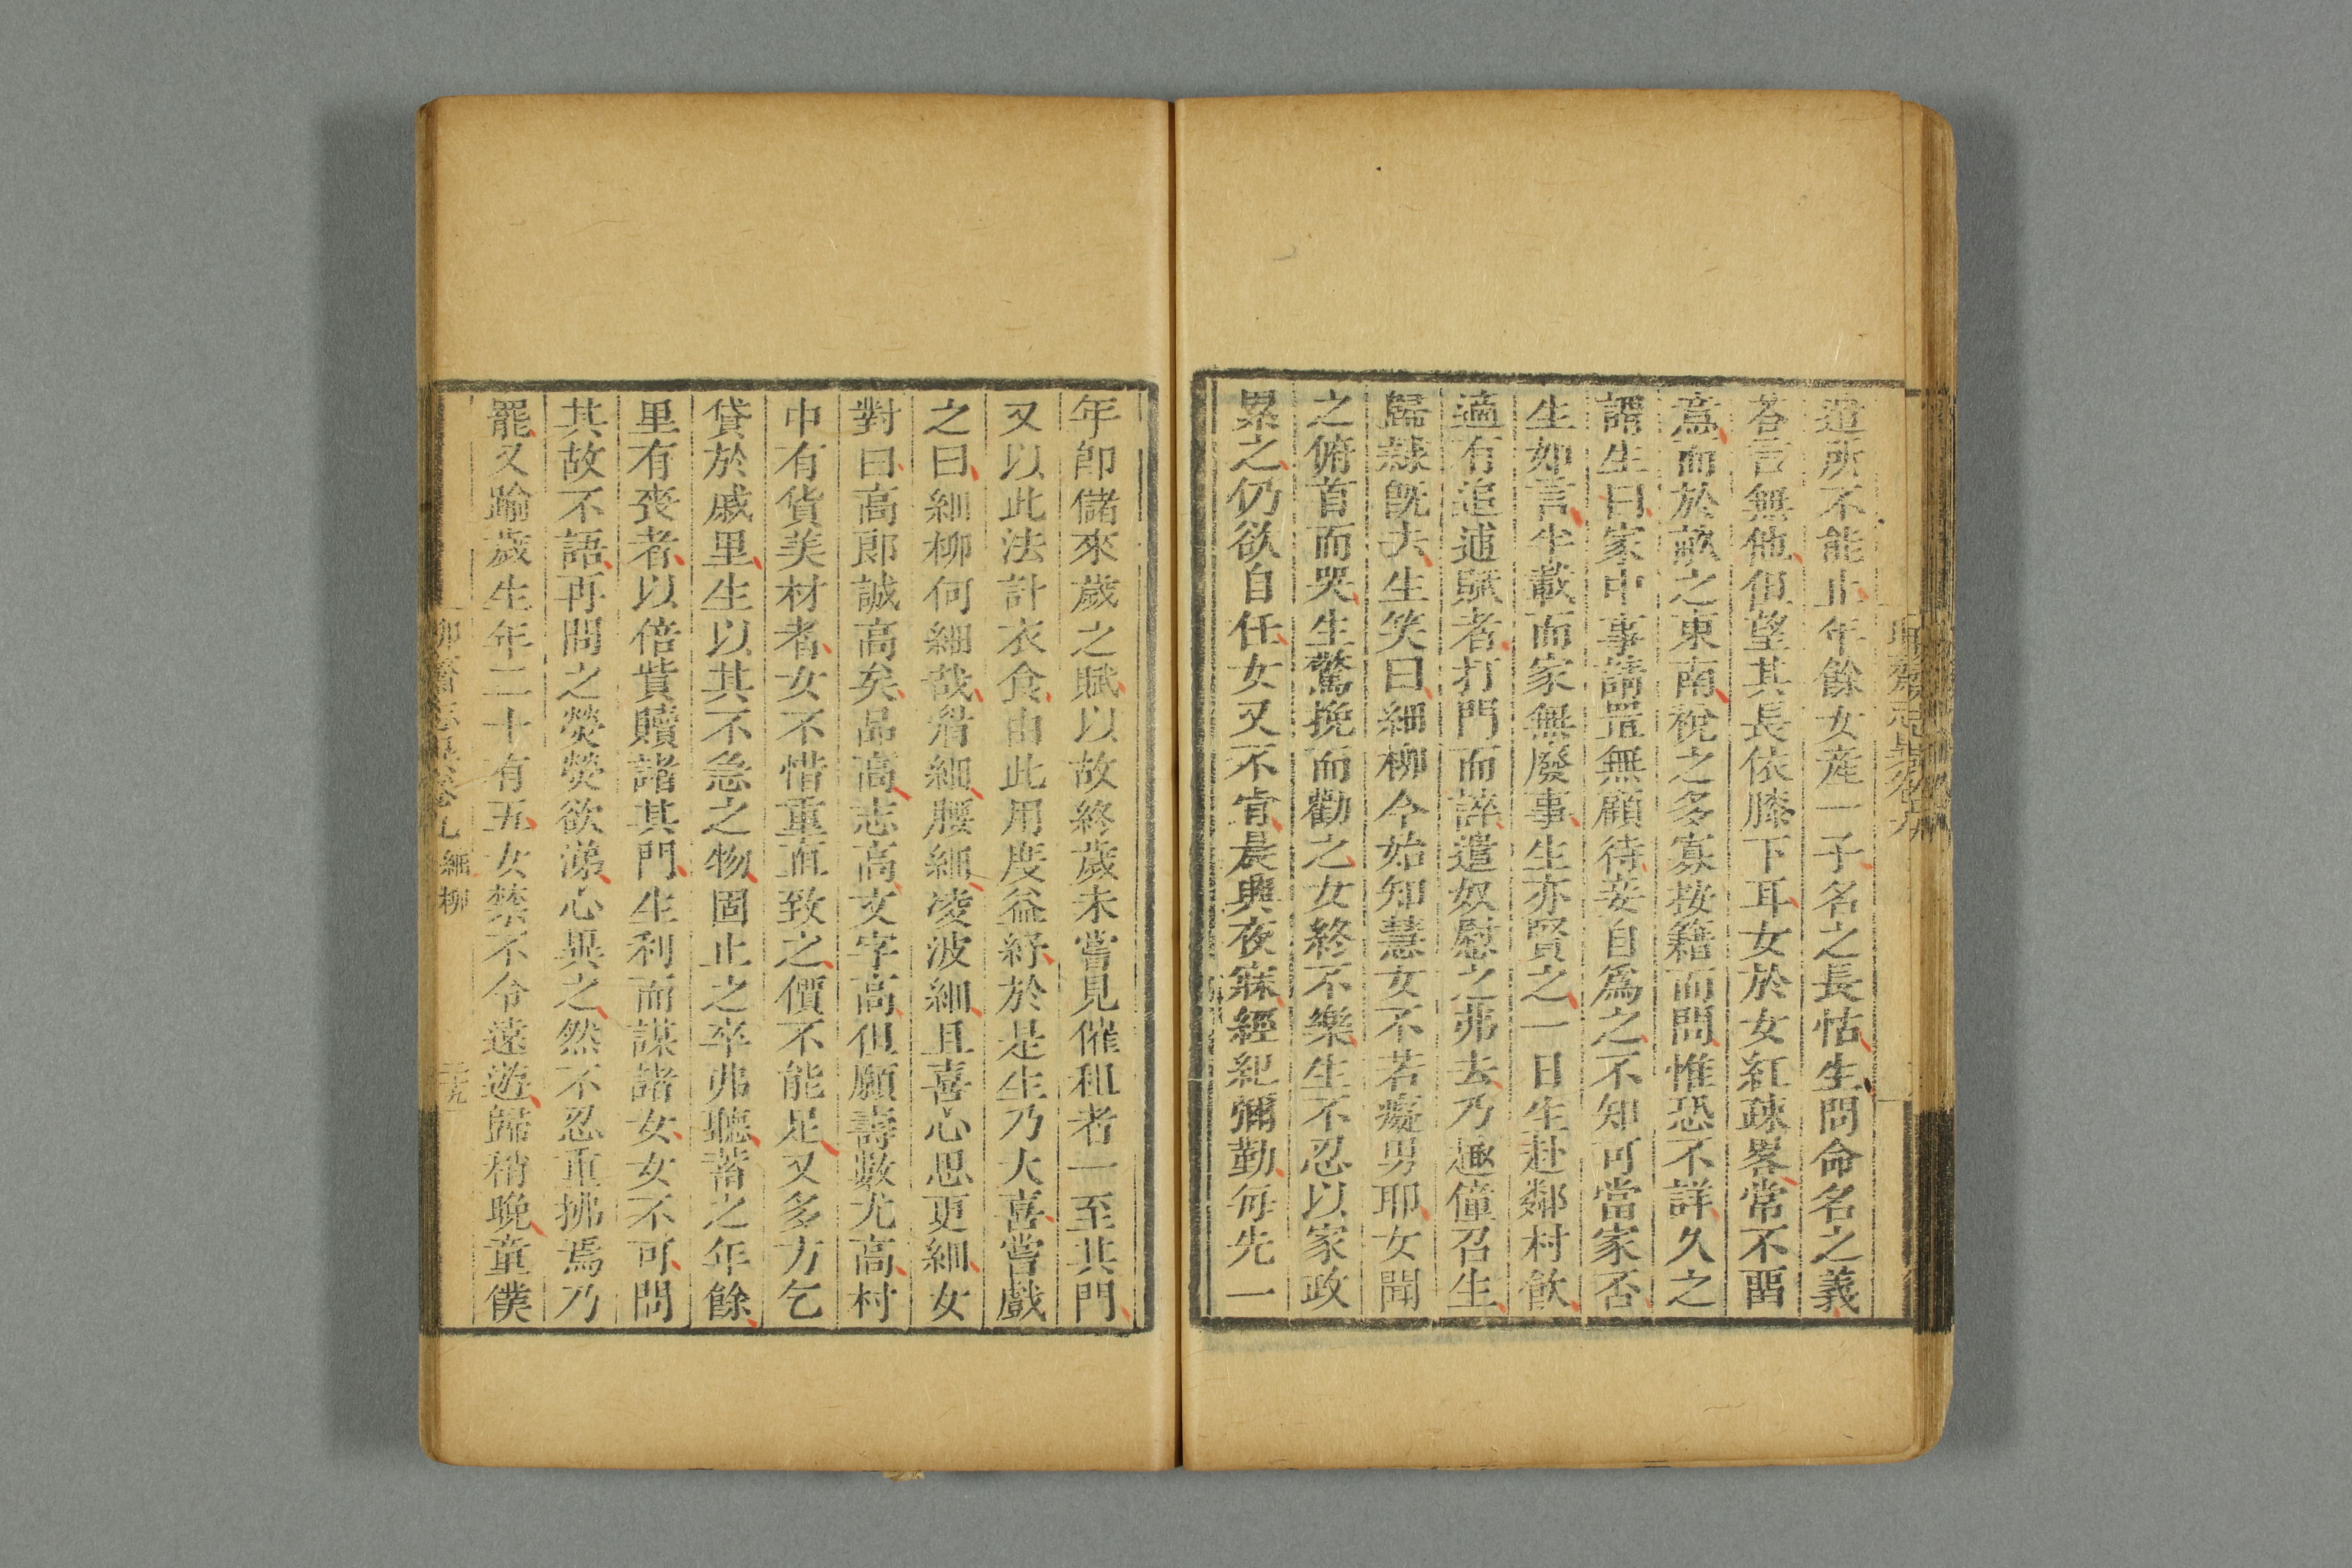 遣所不能止年餘女産一子名之長怙生問命名之義
荅言無他但望其長依膝下耳女於女紅疎畧常不畱
意而於畝之東南稅之多寡按籍而問惟恐不詳久之
謂生曰家中事請置無顧待妾自爲之不知可當家否
生如言半載而家無廢事生亦賢之一日生赴鄰村飲
適有追逋賦者打門而誶遣奴慰之弗去乃趣僮召生
歸隸旣去生笑曰細柳今始知慧女不若癡男耶女聞
之俯首而哭生驚挽而勸之女終不樂生不忍以家政
累之仍欲自任女又不肯晨興夜寐經紀彌勤每先一
年卽儲來歲之賦以故終歲未嘗見催租者一至其門
又以此法計衣食由此用度益紓於是生乃大喜嘗戲
之曰細柳何細哉眉細腰細凌波細且喜心思更細女
對曰高郎誠高矣品高志高文字高但願壽數尤高村
中有貨美材者女不惜重直致之價不能足又多方乞
貸於戚里生以其不急之物固止之卒弗聽蓄之年餘
里有喪者以倍貲贖諸其門生利而謀諸女女不可問
其故不語再問之熒熒欲淚心異之然不忍重拂焉乃
罷又踰歲生年二十有五女禁不令遠遊歸稍晚童僕
細柳